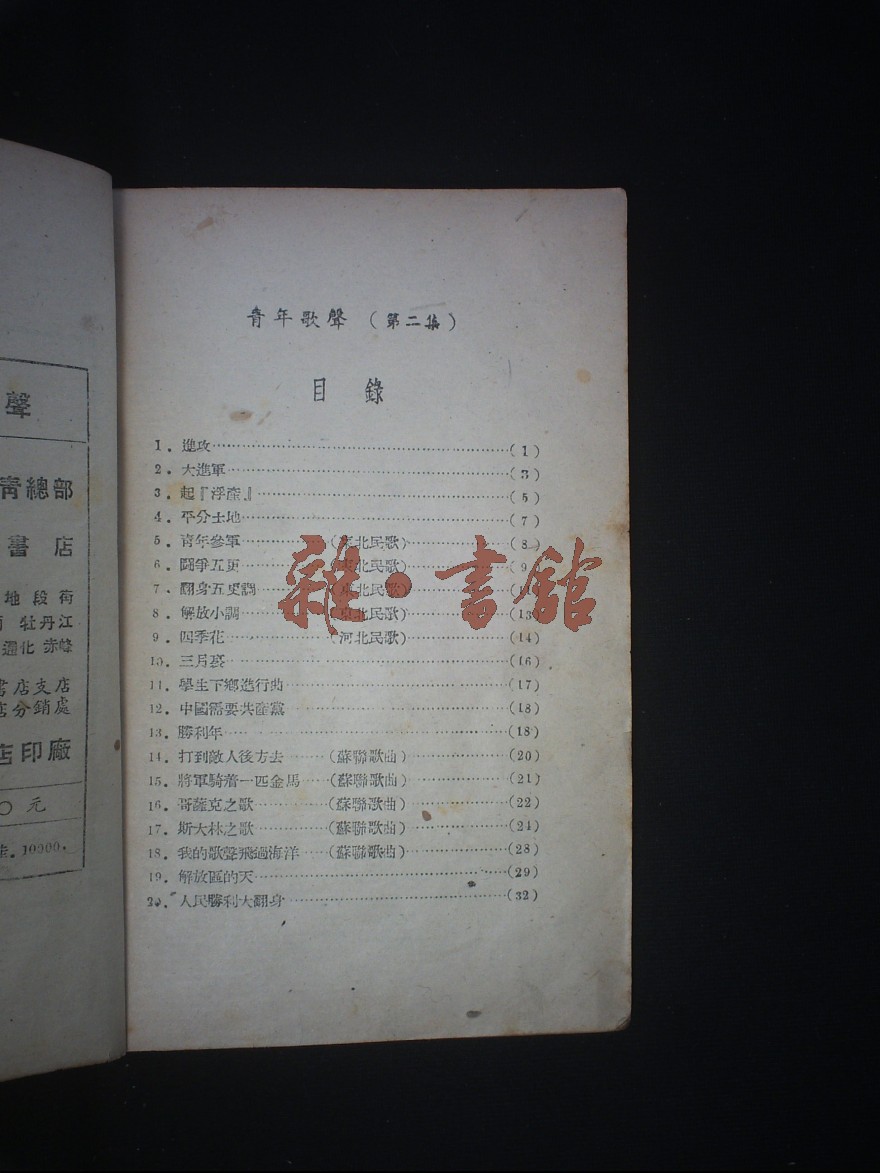 聲
青總部
書店
地段街
牡丹江
通化 赤峰
書店支店
店分銷處
店印廠
〇元
10000.
青年歌聲(第二集)
目錄
1.進攻……(1)
2.大進軍……(3)
3.起『浮產』……(5)
4.平分土地……(7)
5.青年參軍……(東北民歌)……(8)
6.鬪爭五更……(東北民歌)……(9)
7.翻身五更調……(東北民歌)……(11)
8.解放小調……(東北民歌)……(13)
9.四季花……(河北民歌)……(14)
10.三月裏……(16)
11.學生下鄉進行曲……(17)
12.中國需要共產黨……(18)
13.勝利年……(18)
14.打到敵人後方去……(蘇聯歌曲)……(20)
15.將軍騎着一匹金馬……(蘇聯歌曲)……(21)
16.哥薩克之歌……(蘇聯歌曲)……(22)
17.斯大林之歌……(蘇聯歌曲)……(24)
18.我的歌聲飛過海洋……(蘇聯歌曲)……(28)
19.解放區的天……(29)
20.人民勝利大翻身……(32)
雜·書館